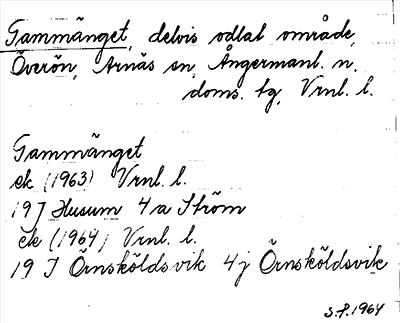 Tammänget, delvis odlat område,
Överön, Arnäs sn, Ångermanl. n.
doms. tg, Vrnl. l.
Tammänget
ek (1963) Vrnl. l.
19 J Husum 4 a Ström
ek (1964) Vrnl. l.
19 J Örnsköldsvik 4 j Örnsköldsvik
S.P. 1964